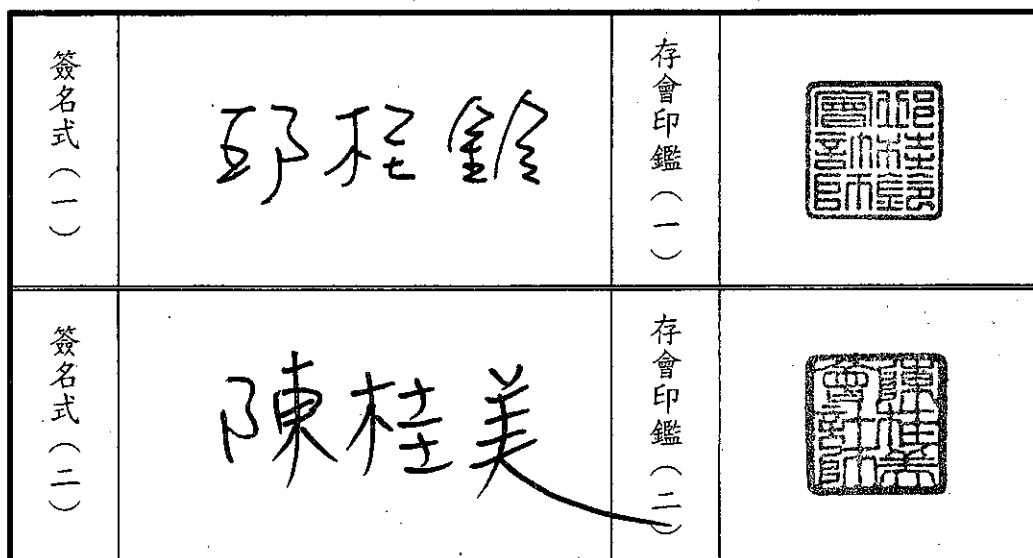 簽名式（一）
邱桂鈴
存會印鑑（一）
邱桂鈴會計師
簽名式（二）
陳桂美
存會印鑑（二）
陳桂美會計師